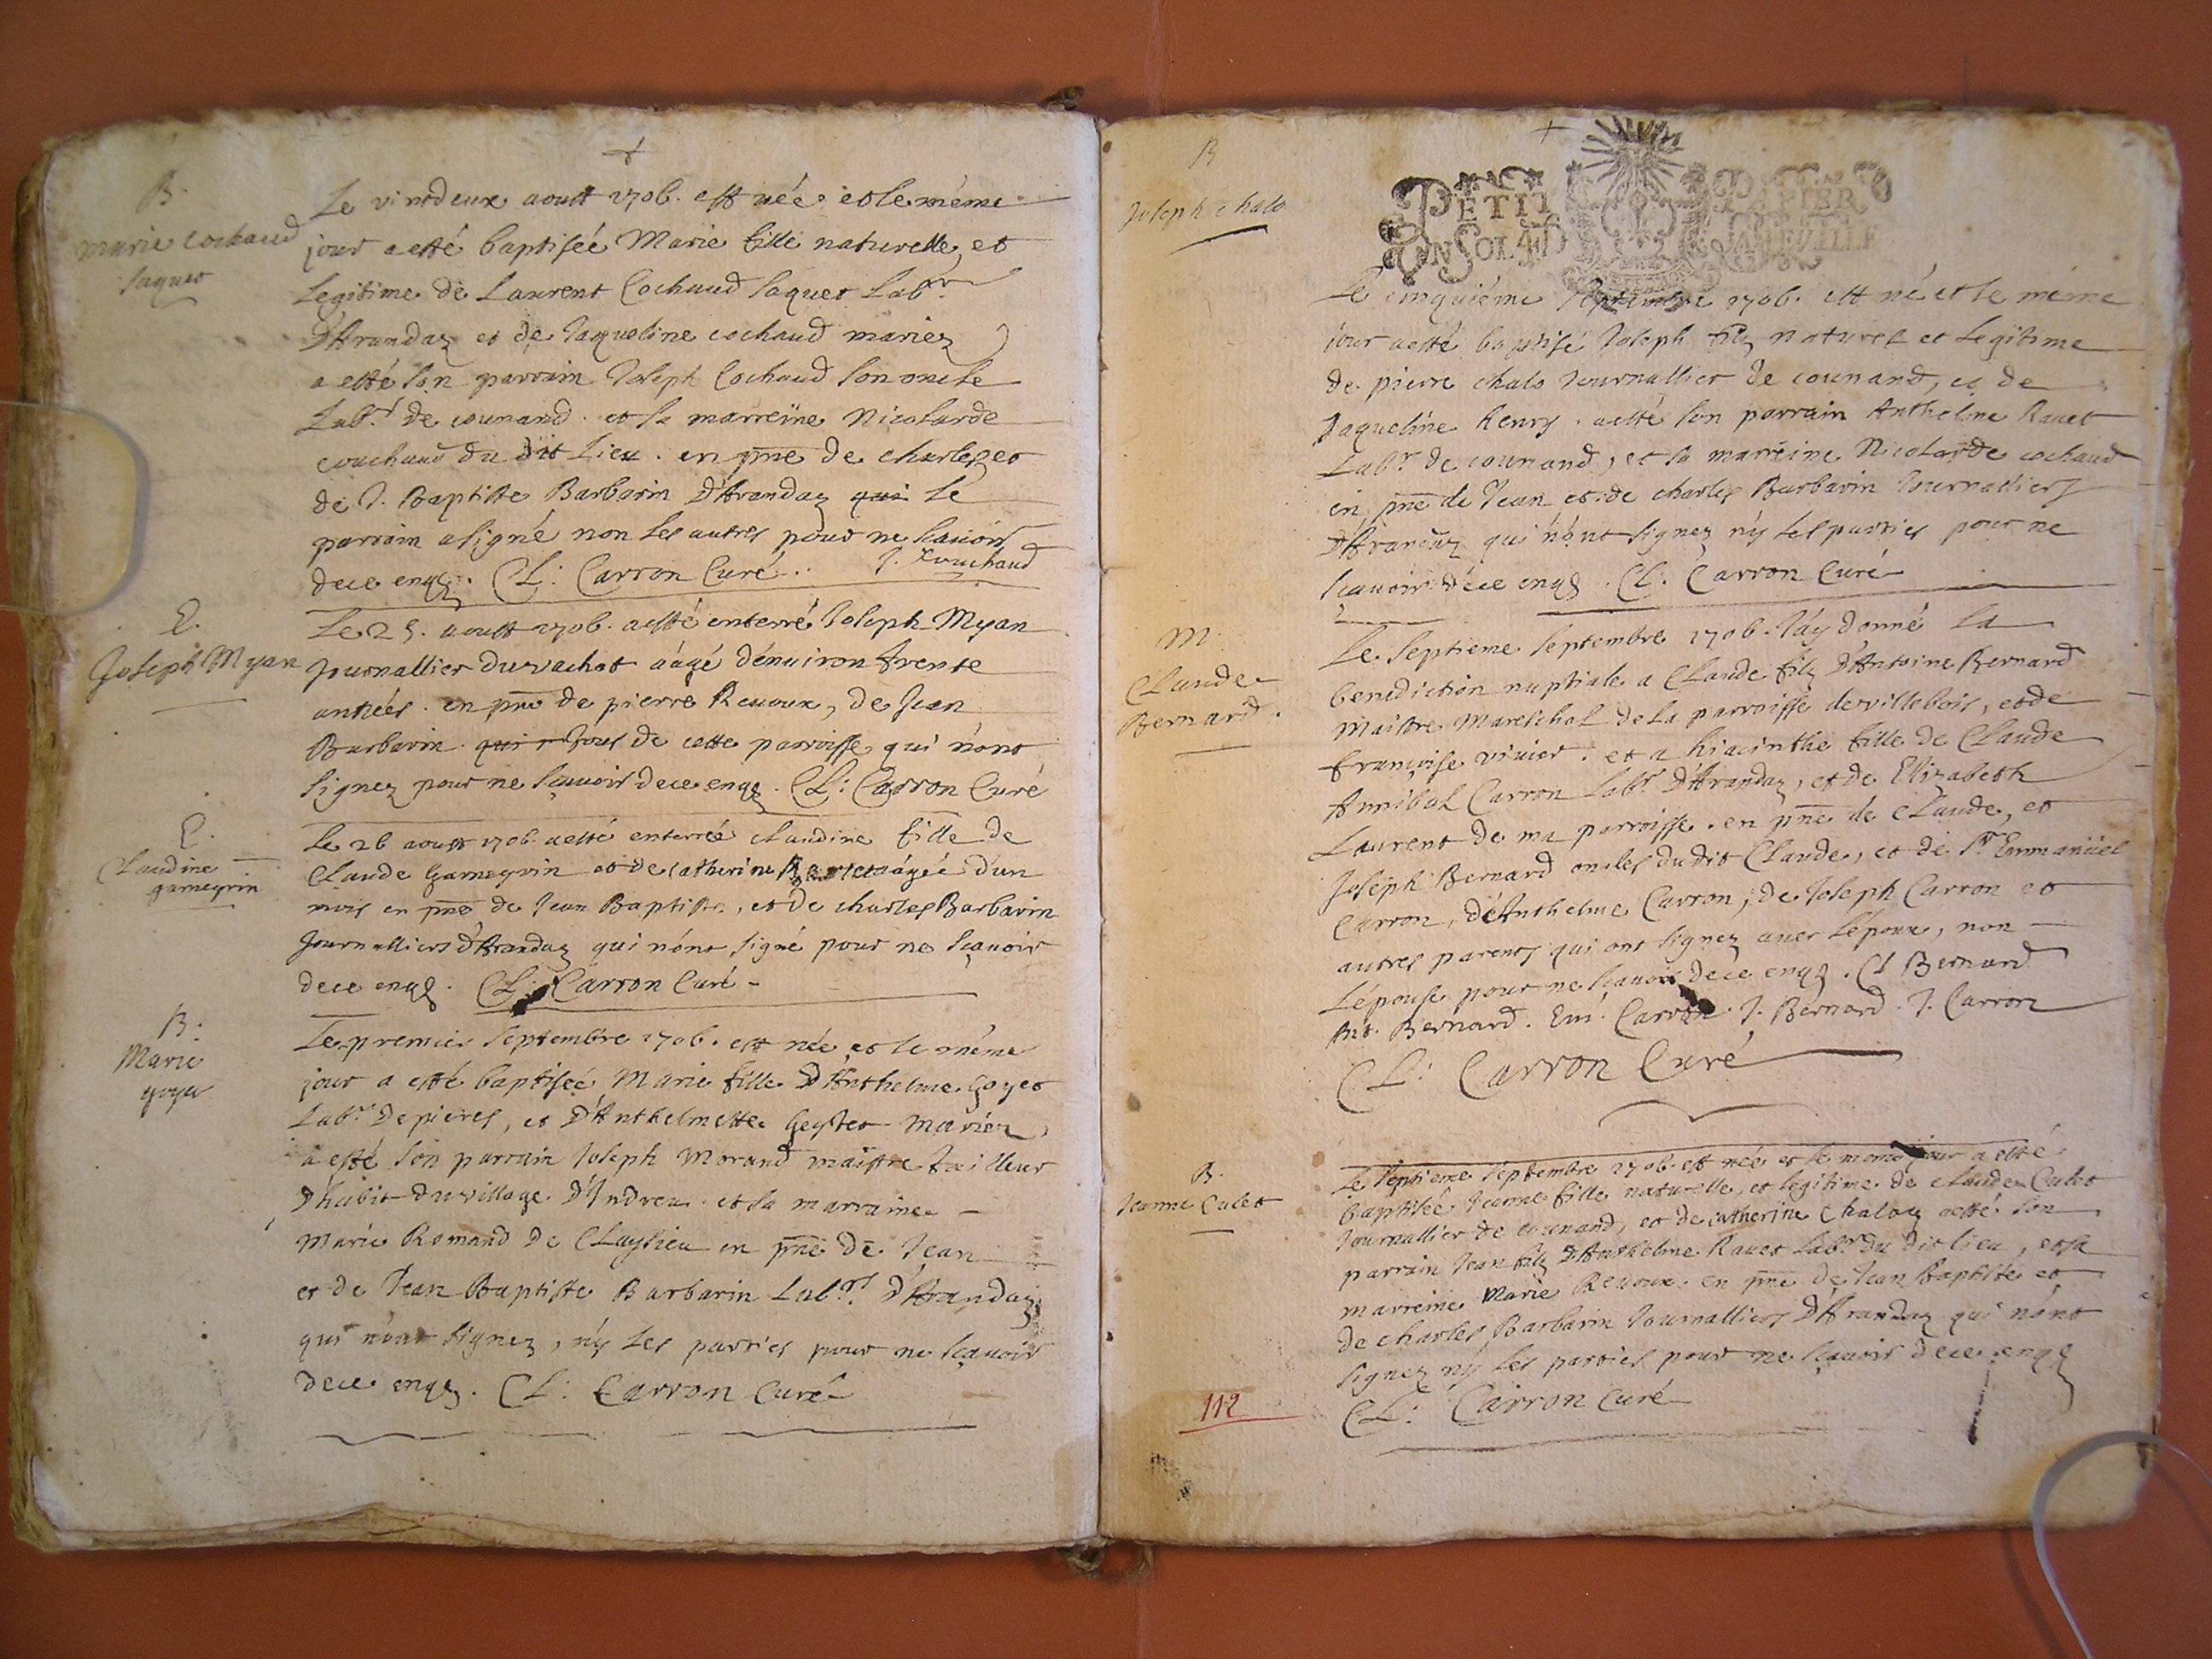 B.
Marie Cochaud
Jaquet
Le vintdeux aoust 1706. est née et le méme
jour a esté baptiseé Marie fille naturelle, et
Legitime de Laurent Cochaud Jaquet Labr.
D'Arandaz et de Jaqueline cochaud mariez
a esté son parrain Joseph Cochaud son oncle
Labr. de counand. et sa marreine Nicolarde
couchaud du dit Lieu. en pñce de charles et
de J. Baptiste Barbarin D'Arandaz qui le
parrain a signé non les autres pour ne scauoir
de ce enqs. CL: Carron Curé. J. Couchaud
E.
Joseph Myan
Le 25. aoust 1706. a esté enterré Joseph Myan
Journallier du vachat aâgé d'enuiron trente
années. en pñce de pierre Reuoux, de Jean
Barbarin. tous de cette parroisse qui n'ont
signez pour ne scauoir de ce enqs. CL: Carron Curé
E.
Claudine
gamegrin
Le 26 aoust 1706. a esté enterrée claudine fille de
Claude Gamegrin et de catherine aágée d'un
mois en pñce de Jean Baptiste, et de charles Barbarin
Journalliers d'Arandaz qui n'ont signé pour ne scauoir
de ce enqs. CL: Carron Curé
B:
Marie
goyet
Le premier septembre 1706. est née et le méme
jour a esté baptisée Marie fille D'Anthelme Goyet
Labr. de pieres, et D'Anthelmette mariez
a esté son parrain Joseph Morand maistre tailleur
D'habit du village D'Indreu. et sa marraine
Marie Romand de Claysieu en pñce de Jean
et de Jean Baptiste Barbarin Labrs. d'Arandaz
qui n'ont signez, n'y les parties pour ne scauoir
de ce enqs. CL: Carron Curé
B
Joseph chalo
PETIT PAPIER
UN SOL 4 D LA FEVILLE
Le cinquiéme septembre 1706. est né et le méme
jour a esté baptisé Joseph filz naturel et legitime
de pierre chalo Journallier de counand, et de
Jaqueline Henry. a esté son parrain Anthelme Rauet
Labr. de counand, et sa marreine Nicolarde cochaud
en pñce de Jean et de charles Barbarin Journalliers
d'Arandaz qui n'ont signez n'y les parties pour ne
scauoir de ce enqs. CL: Carron Curé
M.
Claude
Bernard.
Le septieme septembre 1706. J'ay donné la
benediction nuptiale a Claude filz D'Antoine Bernard
maistre Mareschal de la parroisse de villebois, et de
françoise viuier. et a hiacinthe fille de Claude
Annibal Carron Labr. D'Arandaz, et de Elizabeth
Laurent de ma parroisse. en pñce de Claude, et
Joseph Bernard oncles du dit Claude, et de Sr. Emmanüel
Carron, d'Anthelme Carron, de Joseph Carron et
autres parents qui ont signez auec l'époux, non
l'épouse pour ne scauoir de ce enqs. Cl Bernard
Ant. Bernard. Em. Carron. J. Bernard. J. Carron
CL: Carron Curé
B.
Jeanne Culet
Le septieme septembre 1706. est née et le meme jour a esté
baptisée Jeanne fille naturelle, et legitime de claude Culet
Journallier de counand, et de catherine chaloz a esté son
parrain Jean filz d'Anthelme Rauet Labr. du dit lieu, et sa
marreine Marie Reuoux. en pñce de Jean Baptiste et
de charles Barbarin Journalliers D'Arandaz qui n'ont
signez n'y les parties pour ne scauoir de ce enqs
CL: Carron Curé
112